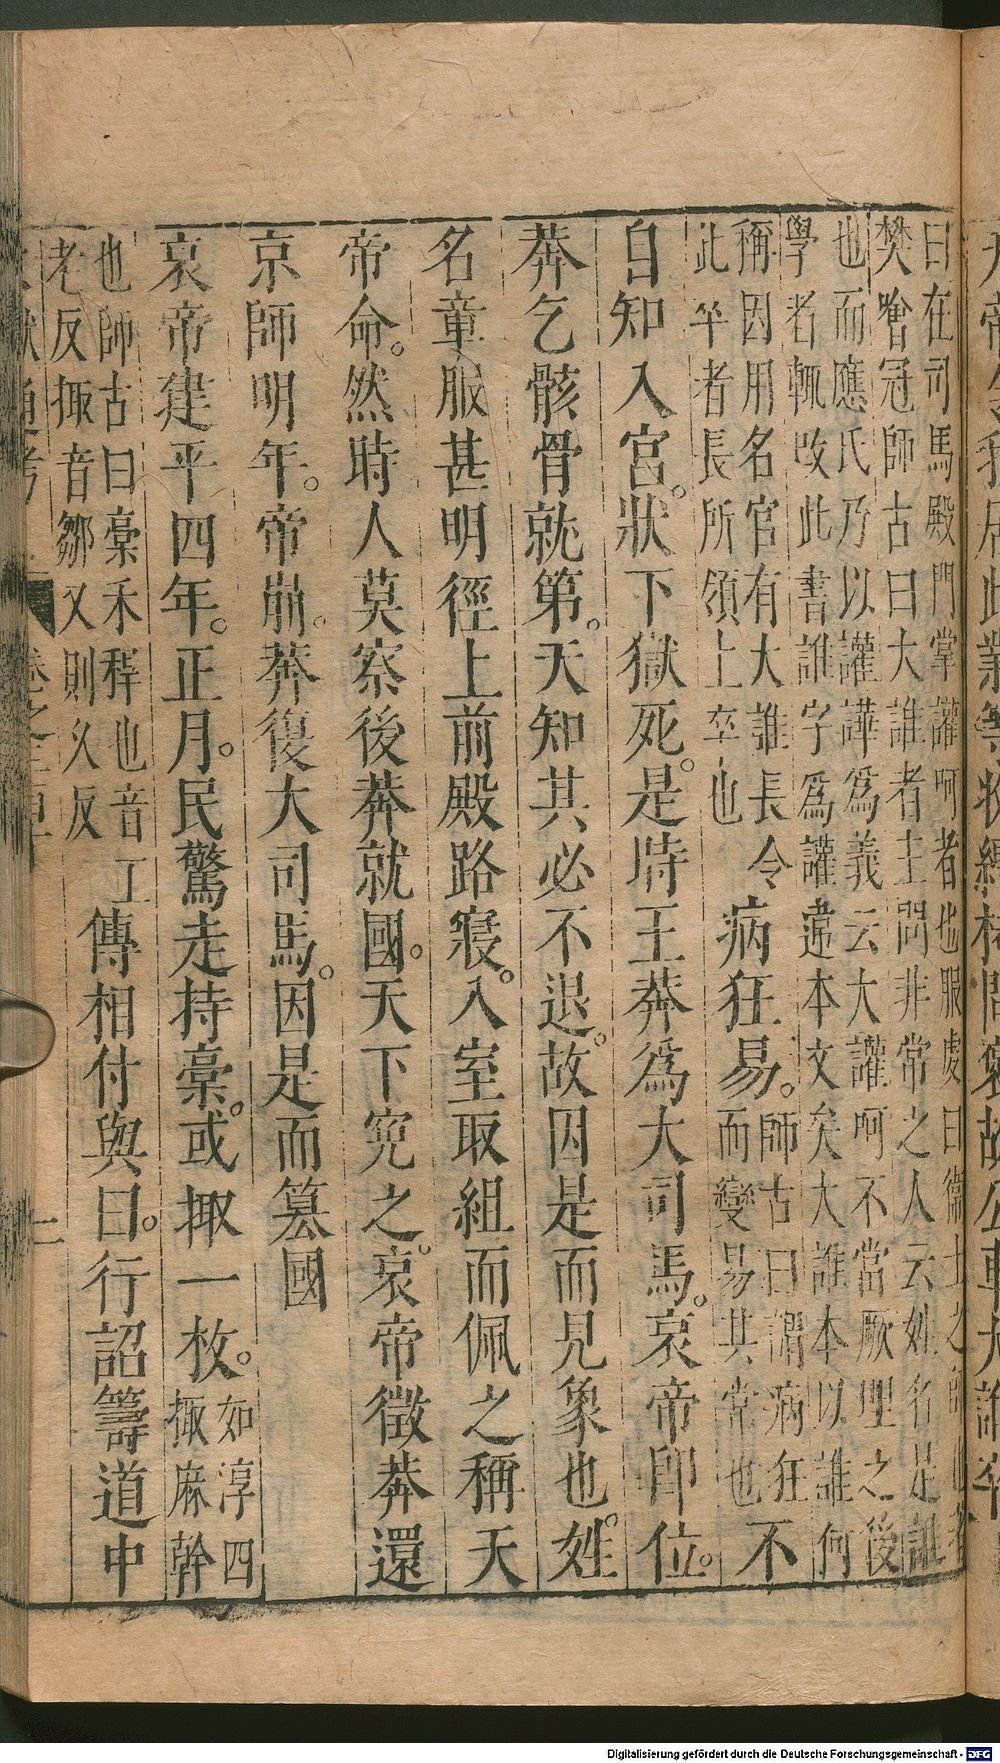 曰在司馬殿門掌讙呵者也服虔曰衛士之師也著
樊噲冠師古曰大誰者主問非常之人云姓名是誰
也而應氏乃以讙譁爲義云大讙呵不當厥理之後
學者輒改此書誰字爲讙違本文矣大誰本以誰何
稱因用名官有大誰長令
此卒者長所領上卒也
病狂易。
師古曰謂病狂
而變易其常也
不
自知入宮。狀下獄死。是時王莽爲大司馬。哀帝卽位。
莽乞骸骨就第。天知其必不退。故因是而見象也。姓
名章服甚明徑上前殿路寢。入室取組而佩之稱天
帝命。然時人莫察後莽就國。天下寃之。哀帝徵莽還
京師明年。帝崩。莽復大司馬。因是而簒國
哀帝建平四年。正月。民驚走持稾。或掫一枚。
如淳四
掫麻幹
也師古曰稾禾稈也音工
老反掫音鄒又則久反
傳相付與曰。行詔籌道中
獻通考
二
Digitalisierung gefördert durch die Deutsche Forschungsgemeinschaft - DFG